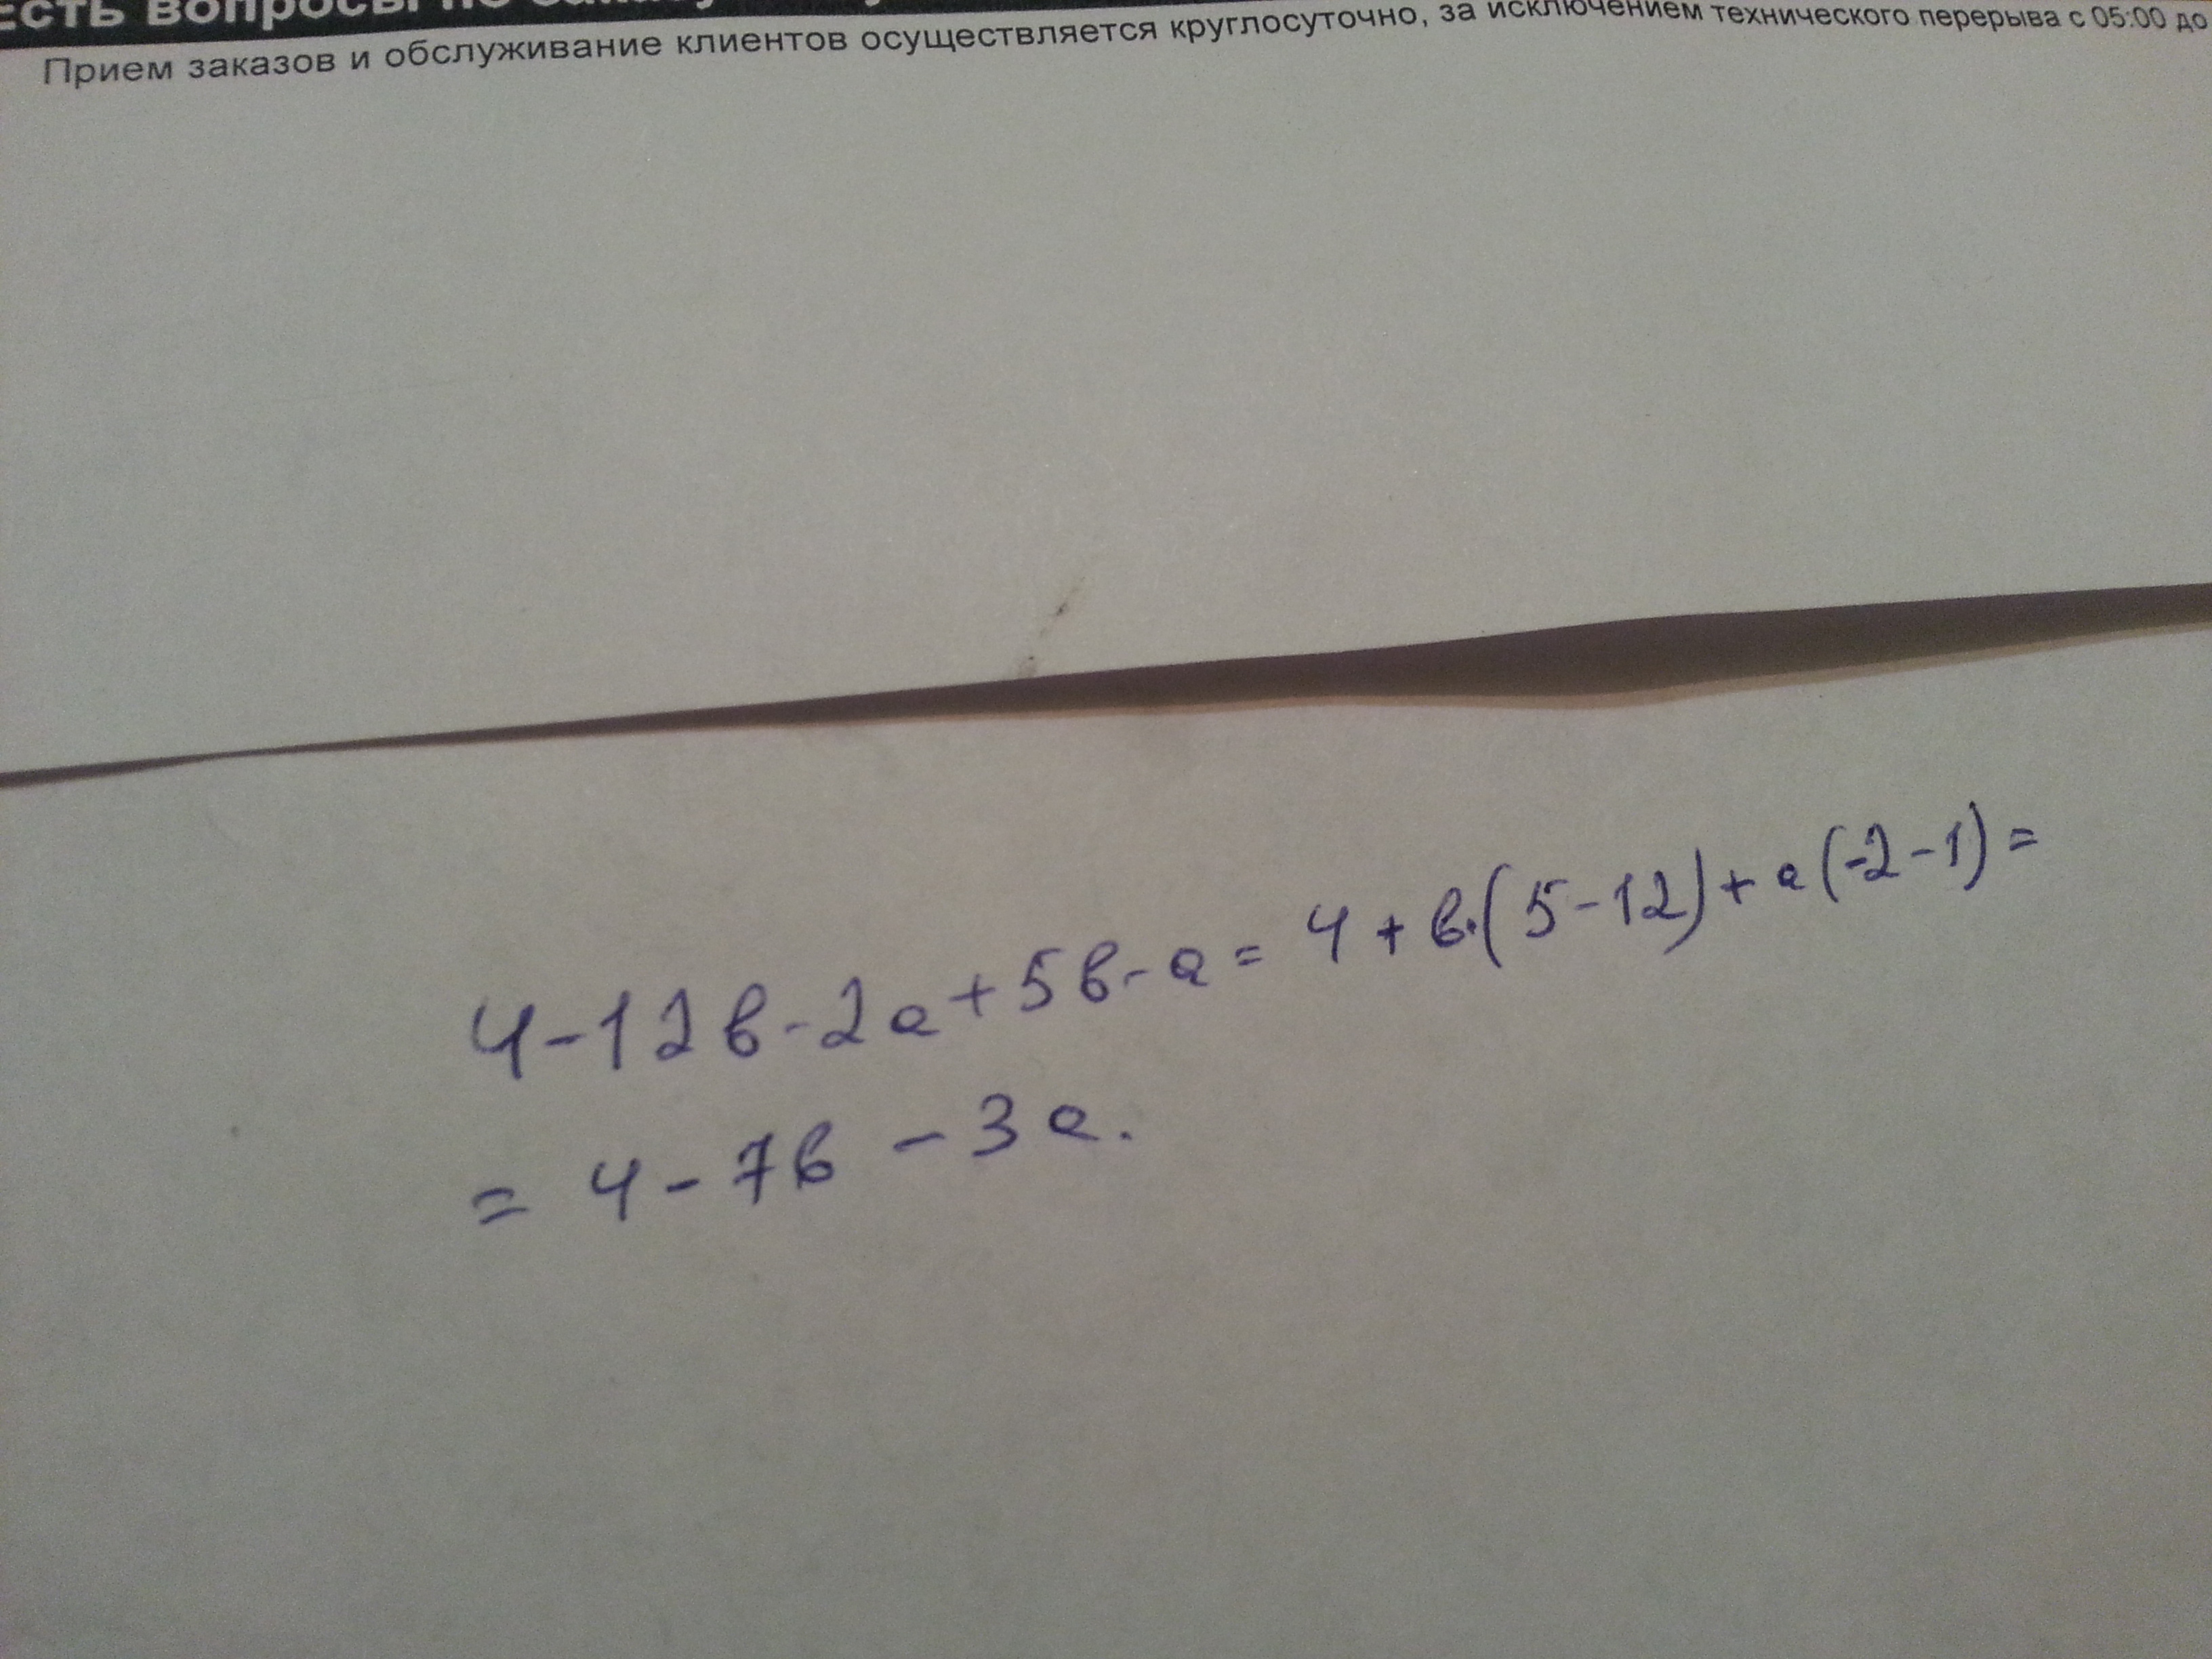 есть вопросы по
Прием заказов и обслуживание клиентов осуществляется круглосуточно, за исключением технического перерыва с 05:00 до
4-12в-2а+5в-а= 4+в·(5-12)+а(-2-1)=
= 4-7в -3а.